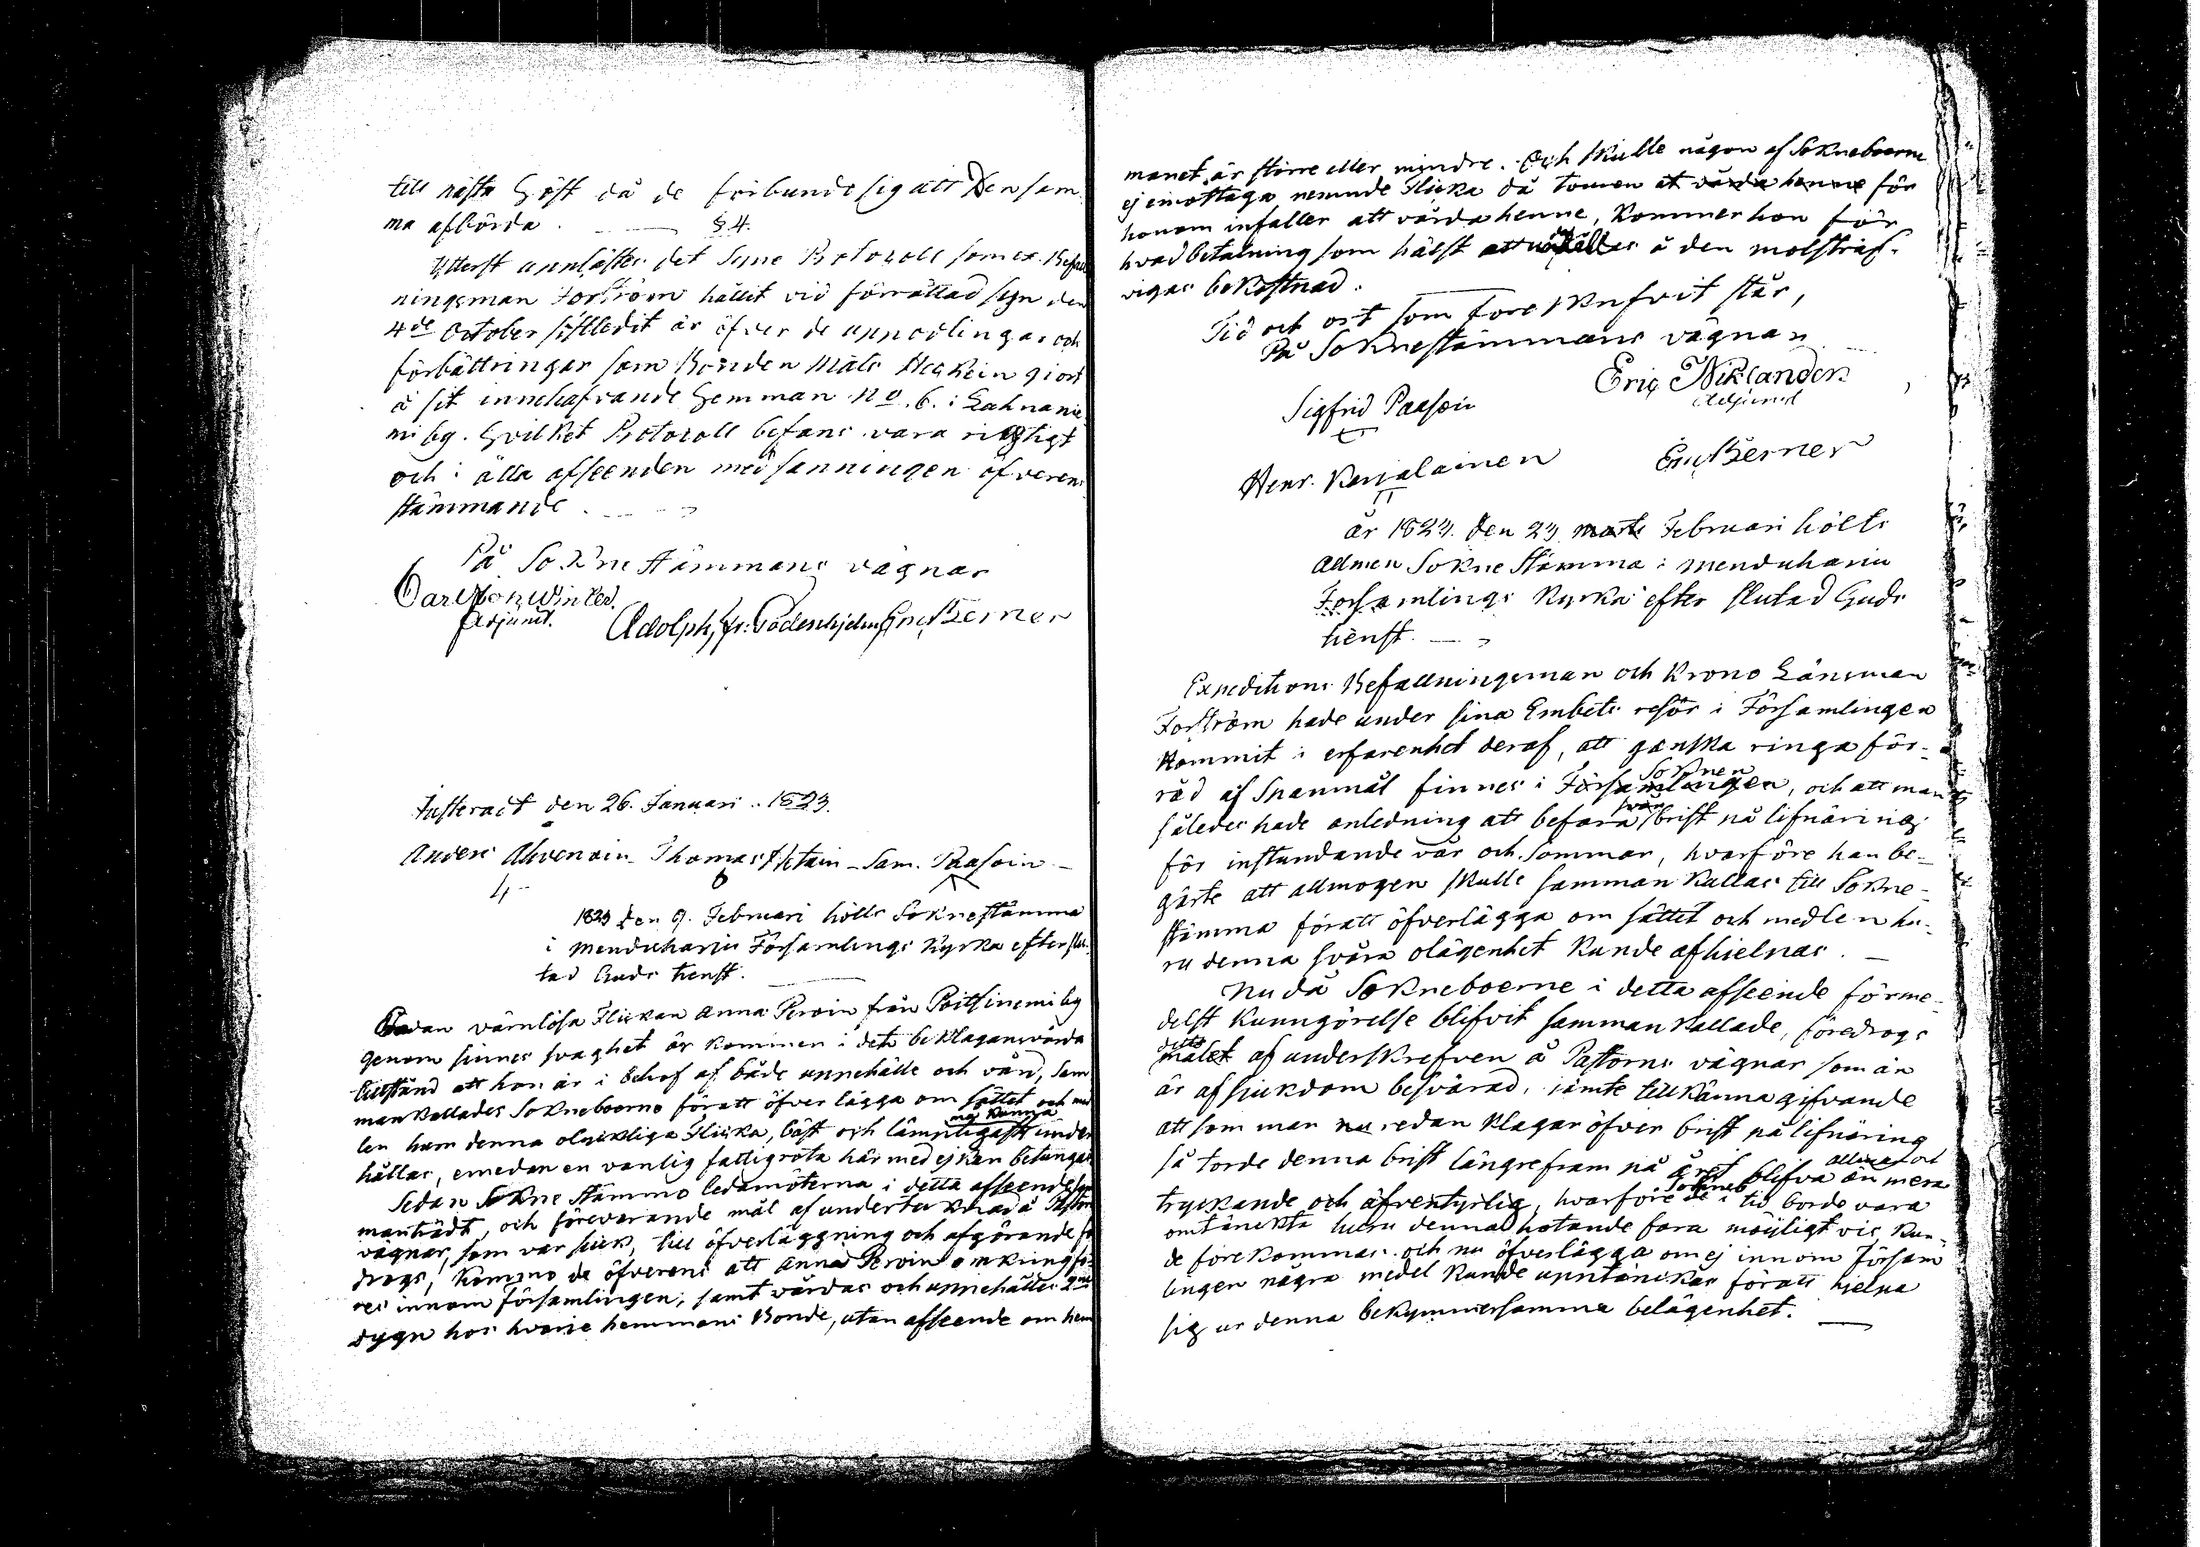 till nästa Höst då de förbundo sig att Den sam
ma afbörda. §4.
Ytterst upplästes det Syne Protocoll som ex. Befall
ningsman Forström hållit vid förrättad syn den
4de October sistledit år öfver de uppodlingar och
förbättringar som Bonden Mats Heskein giort
å sit innehafvande Hemman No. 6. i Lahnanie
mi by. Hvilket Protocoll befans vara rigtigt
och i alla afseenden med sanningen öfverens
stämmande.
På Sokne Stämmans vägnar
Carl von Winter.
Adjunct. Adolph Fr. Gadenhjelm Eric Berner
Justeradt den 26. Januari 1823.
Anders Ahvenain Thomas Sam. Paasoin
4
1823 den 9. Februari hölls Soknestämma
i Menduharju Församlings Kyrka efter slu
tad Guds tienst.
Sedan värnlösa Flickan Anna Pervoin från Poitsinemi by
genom sinnes svaghet är kommen i det beklagansvärda
tillstånd att hon är i behof af både uppehälle och vård, sam
mankallades Sokneboerne för att öfver lägga om sättet och med
len hum denna olyckliga Flicka, bäst och lämpligast må kunna under
hållas, emedan en vanlig fattigrota här med ej kan betungas
Sedan Sokne Stämmo ledamöterna i detta afseende sam
manträdt, och förevarande mål af undertecknad å Pastors
vägnar, som var siuk, till öfverläggning och afgörande fö
redrogs, kommo de öfverens att Anna Pervoin omkring fö
res innom församlingen, samt vårdas och uppehålles 2ne
dygn hos hvarje hemmans Bonde, utan afseende om hem
manet är större eller mindre. Och skulle någon af Sokneboerne
ej emottaga nemnde Flicka då touren at vårda henne för
honom infaller att vårda henne, kommer hon för
hvad betalning som hälst å den motsträf-
vigas bekostnad.
Tid och ort som fore skrifvit står,
På Soknestämmans vägnar
Eric Niklander
Adjunct
Sigfrid Paasoin
Henr. Karjalainen Eric Berner
år 1823. den 23 Februari hölts
Allmen Sokne Stämma i Menduharju
Församlings Kyrka efter slutad Guds
tienst.
Expeditions Befallningsman och Krono Länsman
Forström hade under sina Embets resor i Församlingen
kommit i erfarenhet deraf, att ganska ringa för-
råd af Spanmål finnes i Församlingen Soknen, och att man
således hade anledning att befara svår brist på lifnäring
för instundande vår och Sommar, hvarföre han be-
gärte att allmogen skulle samman kallas till Sokne-
stämma föratt öfverlägga om sättet och medlen hu-
ru denna svåra olägenhet kunde afhielpas.
Nu då Sokneboerne i detta afseende förme-
delst kunngörelse blifvit samman kallade, föredrogs
detta målet af underskrefven å Pastorns vägnar som än
är af siukdom besvärad, jämte tillkänna gifvande
att som man nu redan klagar öfver brist på lifnäring
så torde denna brist längre fram på året blifva än mera allmän och
tryckande och äfventyrlig, hvarföre de i tid borde vara
omtänckta huru denna hotande fara möjligt vis kun-
de förekommas och nu öfverlägga om ej innom Försam
lingen några medel kunde upptänckas föratt hielpa
sig ur denna bekymmersamma belägenhet.